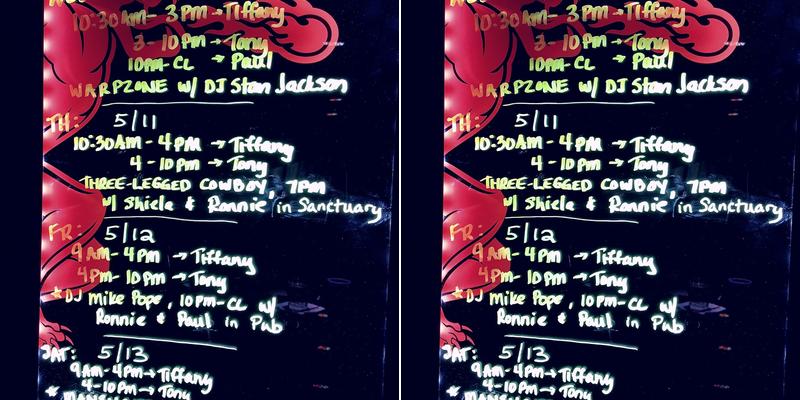 10:30AM - 3PM → Tiffany
3 - 10PM → Tony
10PM - CL → Paul
WARPZONE w/ DJ Stan Jackson
TH: 5/11
10:30AM - 4PM → Tiffany
4 - 10PM → Tony
THREE-LEGGED COWBOY, 7PM
w/ Shiela & Ronnie in Sanctuary
FR: 5/12
9AM - 4PM → Tiffany
4PM - 10PM → Tony
* DJ Mike Pope, 10PM-CL w/
Ronnie & Paul in Pub
SAT: 5/13
9AM - 4PM → Tiffany
4 - 10PM → Tony
10:30AM - 3PM → Tiffany
3 - 10PM → Tony
10PM - CL → Paul
WARPZONE w/ DJ Stan Jackson
TH: 5/11
10:30AM - 4PM → Tiffany
4 - 10PM → Tony
THREE-LEGGED COWBOY, 7PM
w/ Shiela & Ronnie in Sanctuary
FR: 5/12
9AM - 4PM → Tiffany
4PM - 10PM → Tony
* DJ Mike Pope, 10PM-CL w/
Ronnie & Paul in Pub
SAT: 5/13
9AM - 4PM → Tiffany
4 - 10PM → Tony